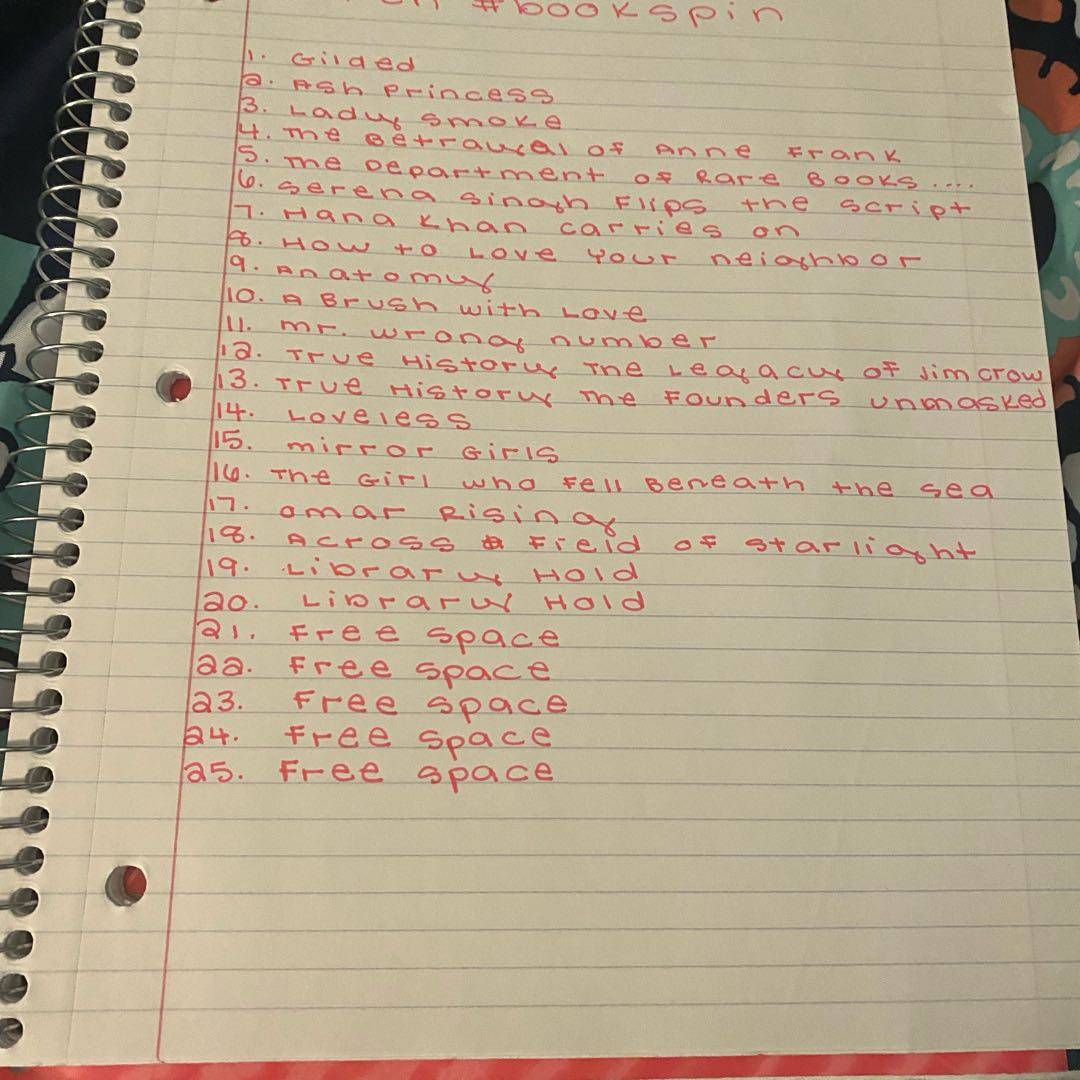 #bookspin
1. Gilded
2. Ash Princess
3. Lady Smoke
4. The Betrayal of Anne Frank
5. The Department of Rare Books....
6. Serena Singh Flips the Script
7. Hana Khan carries on
8. How to Love your neighbor
9. Anatomy
10. A Brush with Love
11. mr. wrong number
12. True History The Legacy of Jim crow
13. True History The Founders unmasked
14. Loveless
15. mirror Girls
16. The Girl who Fell Beneath the sea
17. omar Rising
18. Across Field of starlight
19. Library Hold
20. Library Hold
21. Free space
22. Free space
23. Free space
24. Free space
25. Free space